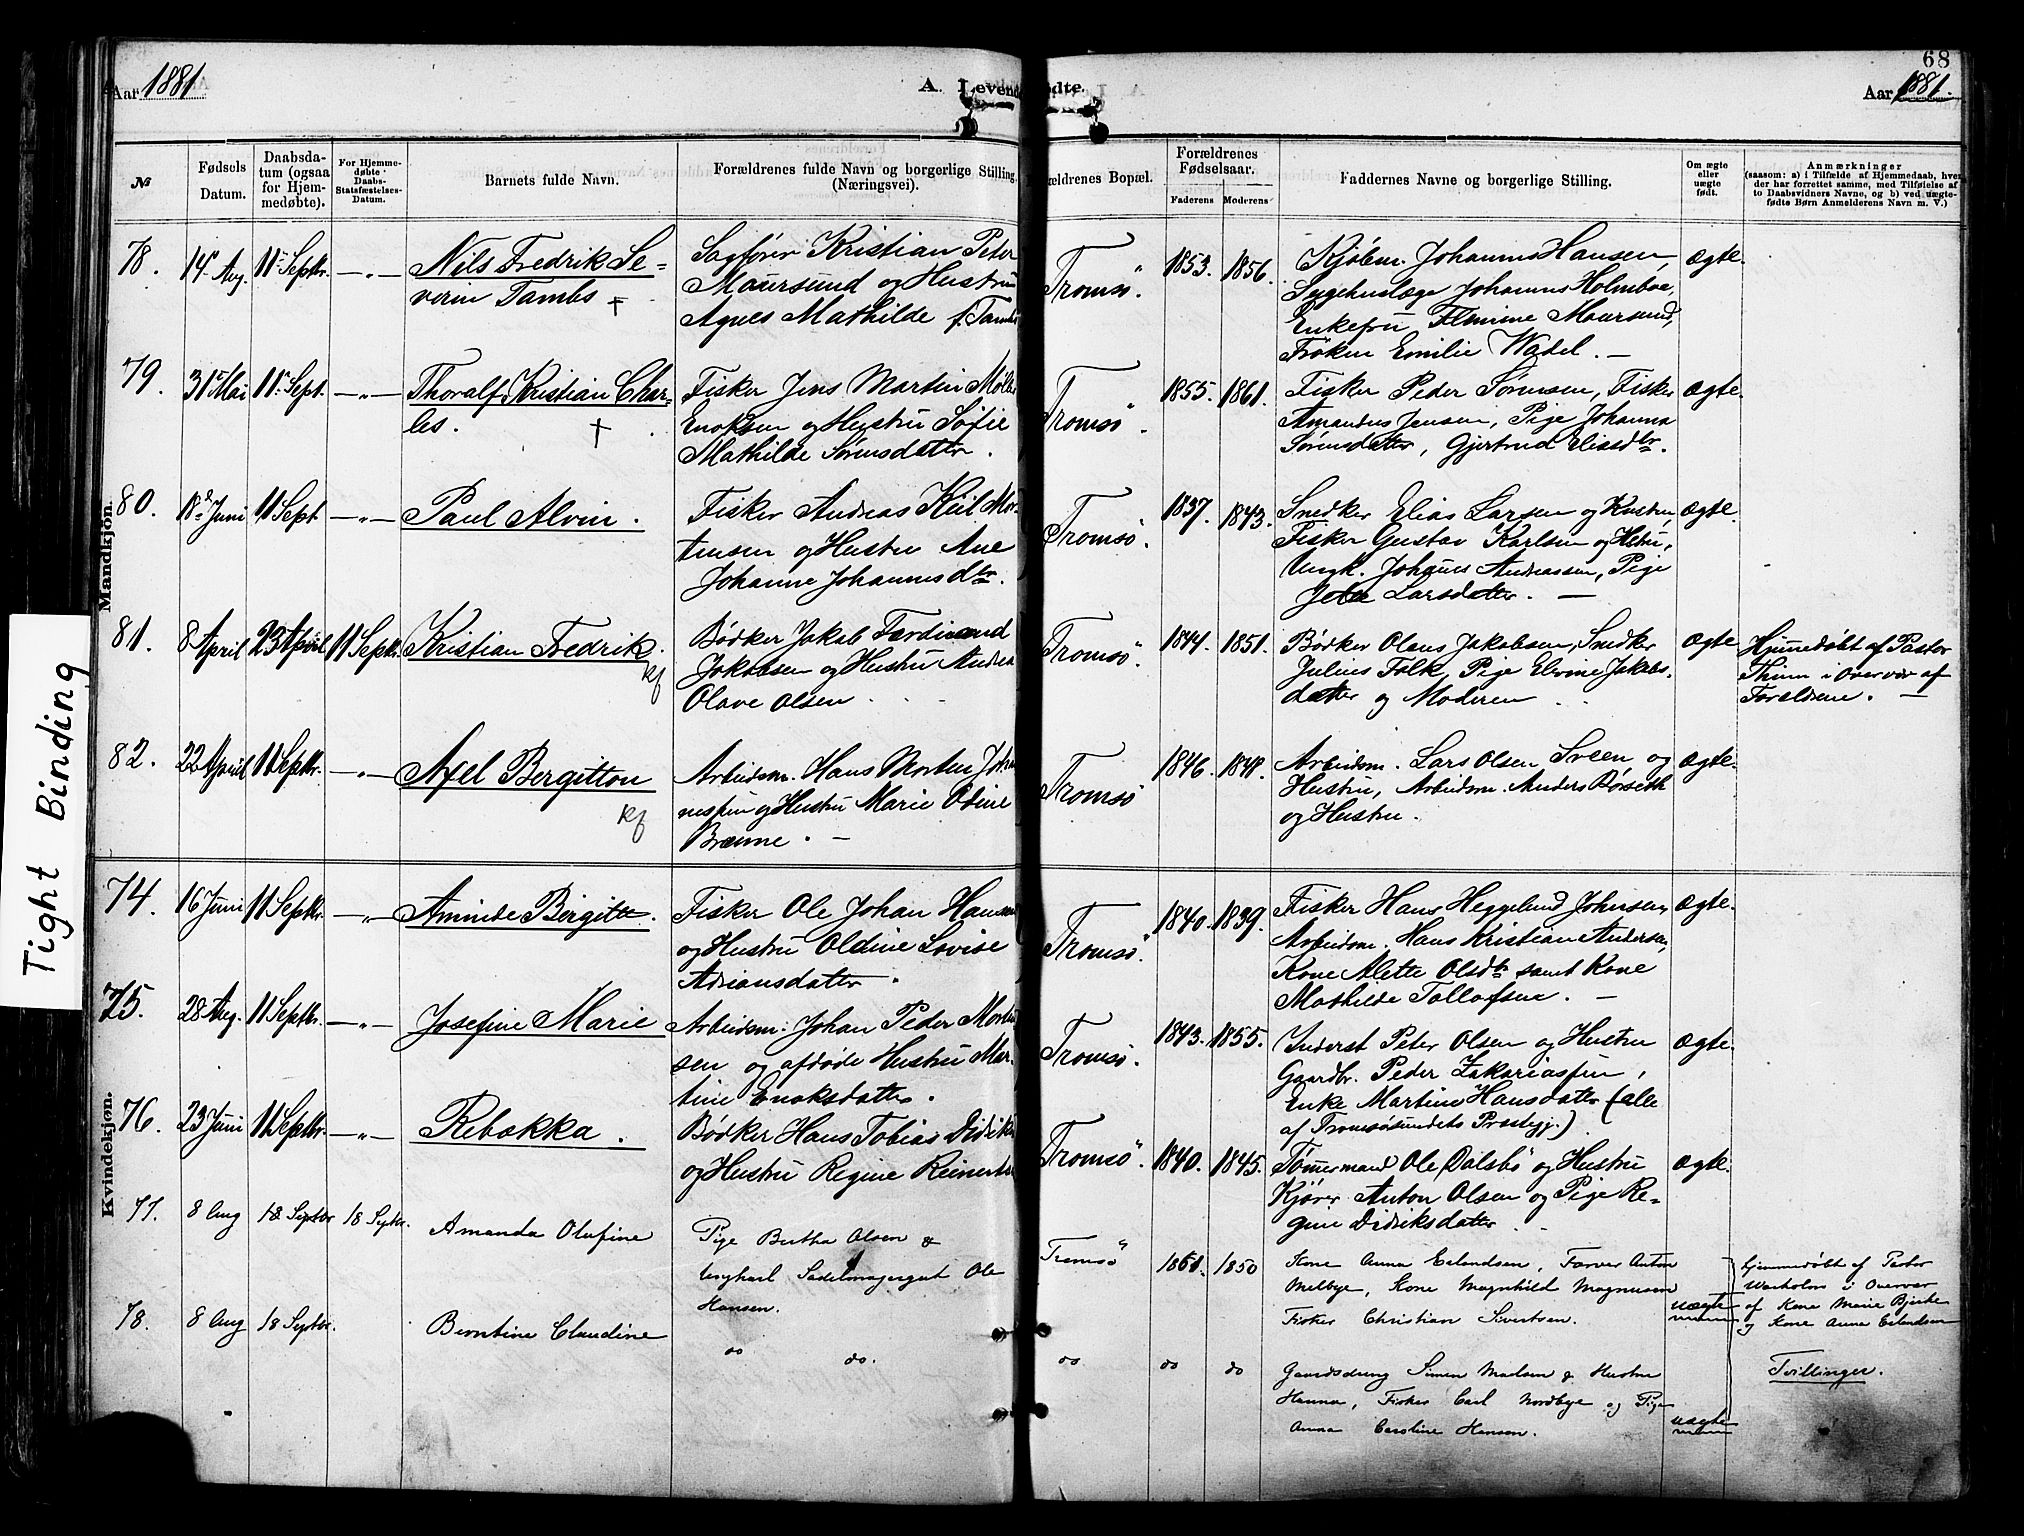 68
Aar 1881
A. Levende
ødte.
Aar 1881.
№
Fødsels Datum.
Daabsdatum (ogsaa for Hjemmedøbte).
For Hjemmedøbte Daabs-Statsfæstelses-Datum.
Barnets fulde Navn.
Forældrenes fulde Navn og borgerlige Stilling (Næringsvei).
ældrenes Bopæl.
Forældrenes Fødselsaar.
Faderens
Moderens
Faddernes Navne og borgerlige Stilling.
Om ægte eller uægte født.
Anmærkninger
(saasom: a) i Tilfælde af Hjemmedaab, hver
der har forrettet samme, med Tilføielse af
to Daabsvidners Navne, og b) ved uægte-
fødte Børn Anmelderens Navn m. V.)
Mandkjøn.
78. 14 Aug. 11 Septbr. —„— Nils Fredrik Se-
verin Tambs †
Sagfører Kristian Peter
Maursund og Hustru
Agnes Mathilde f. Tambs
Tromsö. 1853. 1856.
Kjøbm. Johannes Hansen,
Sygehuslæge Johannes Holmboe,
Enkefru Maursund,
Frøken Emilie Wadel. —
Ægte.
79. 31 Mai 11 Sept. —„— Thoralf Kristian Char-
les. †
Fisker Jens Martin
Enoksen og Hustru Sofie
Mathilde Sørensdatter.
Tromsö. 1855. 1861.
Fisker Peder Sørensen, Fisker
Amandus Jensen, Pige Johanna
Sørensdatter, Gjertrud Eliasdtr.
Ægte.
80. 18 Juni 11 Sept. —„— Paul Alvin.
Fisker Andreas Kiil Mor-
tensen og Hustru Ane
Johanne Johannesdtr.
Tromsö. 1837. 1843.
Snedker Elias Larsen og Hustru,
Fisker Gustav Karlsen og Hstru,
Ungk. Johannes Andreassen, Pige
Larsdatter. —
Ægte.
81. 8 April 23 April 11 Septbr. Kristian Fredrik.
kf
Bødker Jakob Ferdinand
Jakobsen og Hustru Andrea
Olave Olsen
Tromsö. 1844. 1851.
Bødker Olaus Jakobsen, Snedker
Julius Falk, Pige Elvine Jakobs-
datter og Moderen
Ægte
Hjemmedøbt af Pastor
Thum i Overvær af
Forældrene. —
82. 22 April 11 Septbr. —„— Axel Bergitton
kf
Arbeidsm. Hans Morten Johan
nessen og Hustru Marie Odine
Brænne. —
Tromsö 1846. 1848.
Arbeidsm. Lars Olsen Sveen og
Hustru, Arbeidsm. Anders Børseth
og Hustru.
Ægte.
Kvindekjøn.
74. 16 Juni 11 Septbr. —„— Aminde Birgitte.
Fisker Ole Johan Hansen
og Hustru Oldine Lovise
Adriansdatter.
Tromsö. 1840. 1839.
Fisker Hans Heggelund Johnsen,
Arbeidsm. Hans Kristian Andersen,
Kone Alette Olsdtr samt Kone
Mathilde Tollefsen. —
Ægte.
75. 28 Aug. 11 Septbr. —„— Josefine Marie
Arbeidsm. Johan Peder Morten
sen og afdøde Hustru Mar-
tine Enoksdatter.
Tromsö. 1843. 1855.
Inderst Peter Olsen og Hustru
Gaardbr. Peder Zakariassen,
Enke Martine Hansdatter (alle
af Tromsøsundets Prestegj.)
Ægte.
76. 23 Juni 11 Septbr. —„— Rebekka.
Bødker Hans Tobias Didriks
og Hustru Regine Reinerts
Tromsö. 1840. 1845.
Tømmermand Ole Dalsbö og Hustru
Kjører Anton Olsen og Pige Re-
gine Didriksdatter.
Ægte.
77. 8 Aug 18 Septbr 18 Septbr. Amanda Olufine
Pige Bertha Olsen &
Ungkarl Sadelmagersvent Ole
Hansen.
Tromsö 1861. 1850
Kone Anna Erlandsen, Farver Anton
Melbye, Kone Magnhild Magnussen
Fisker Christian Sivertsen.
uægte
Hjemmedøbt af Pastor
Warholm i Overvær
af Kone Marie Bjerke
og Kone Anna Erlandsen
78. 8 Aug 18 Septbr. Berntine Claudine
do do.
do do do
Gaardsdreng Simen Madsen & Hustru
Hanna, Fisker Carl Nordbye og Pige
Anna Caroline Hansen.
uægte
Tvillinger.
Tight Binding